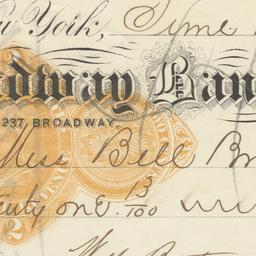 York, June
dway Ban
237 BROADWAY
Bell
enty one 13/100
2